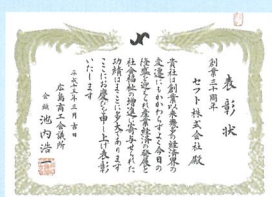 表彰状
創業三十周年
セフト株式会社殿
貴社は創業以来幾多の経済界の
変遷にもかかわらずよく今日の
隆盛を迎えられ産業経済の発展と
社会福祉の増進に寄与せられた
功績はまことに多大であります
ここにお慶びを申し上げ表彰
いたします
平成十五年三月吉日
広島商工会議所
会頭 池内浩一